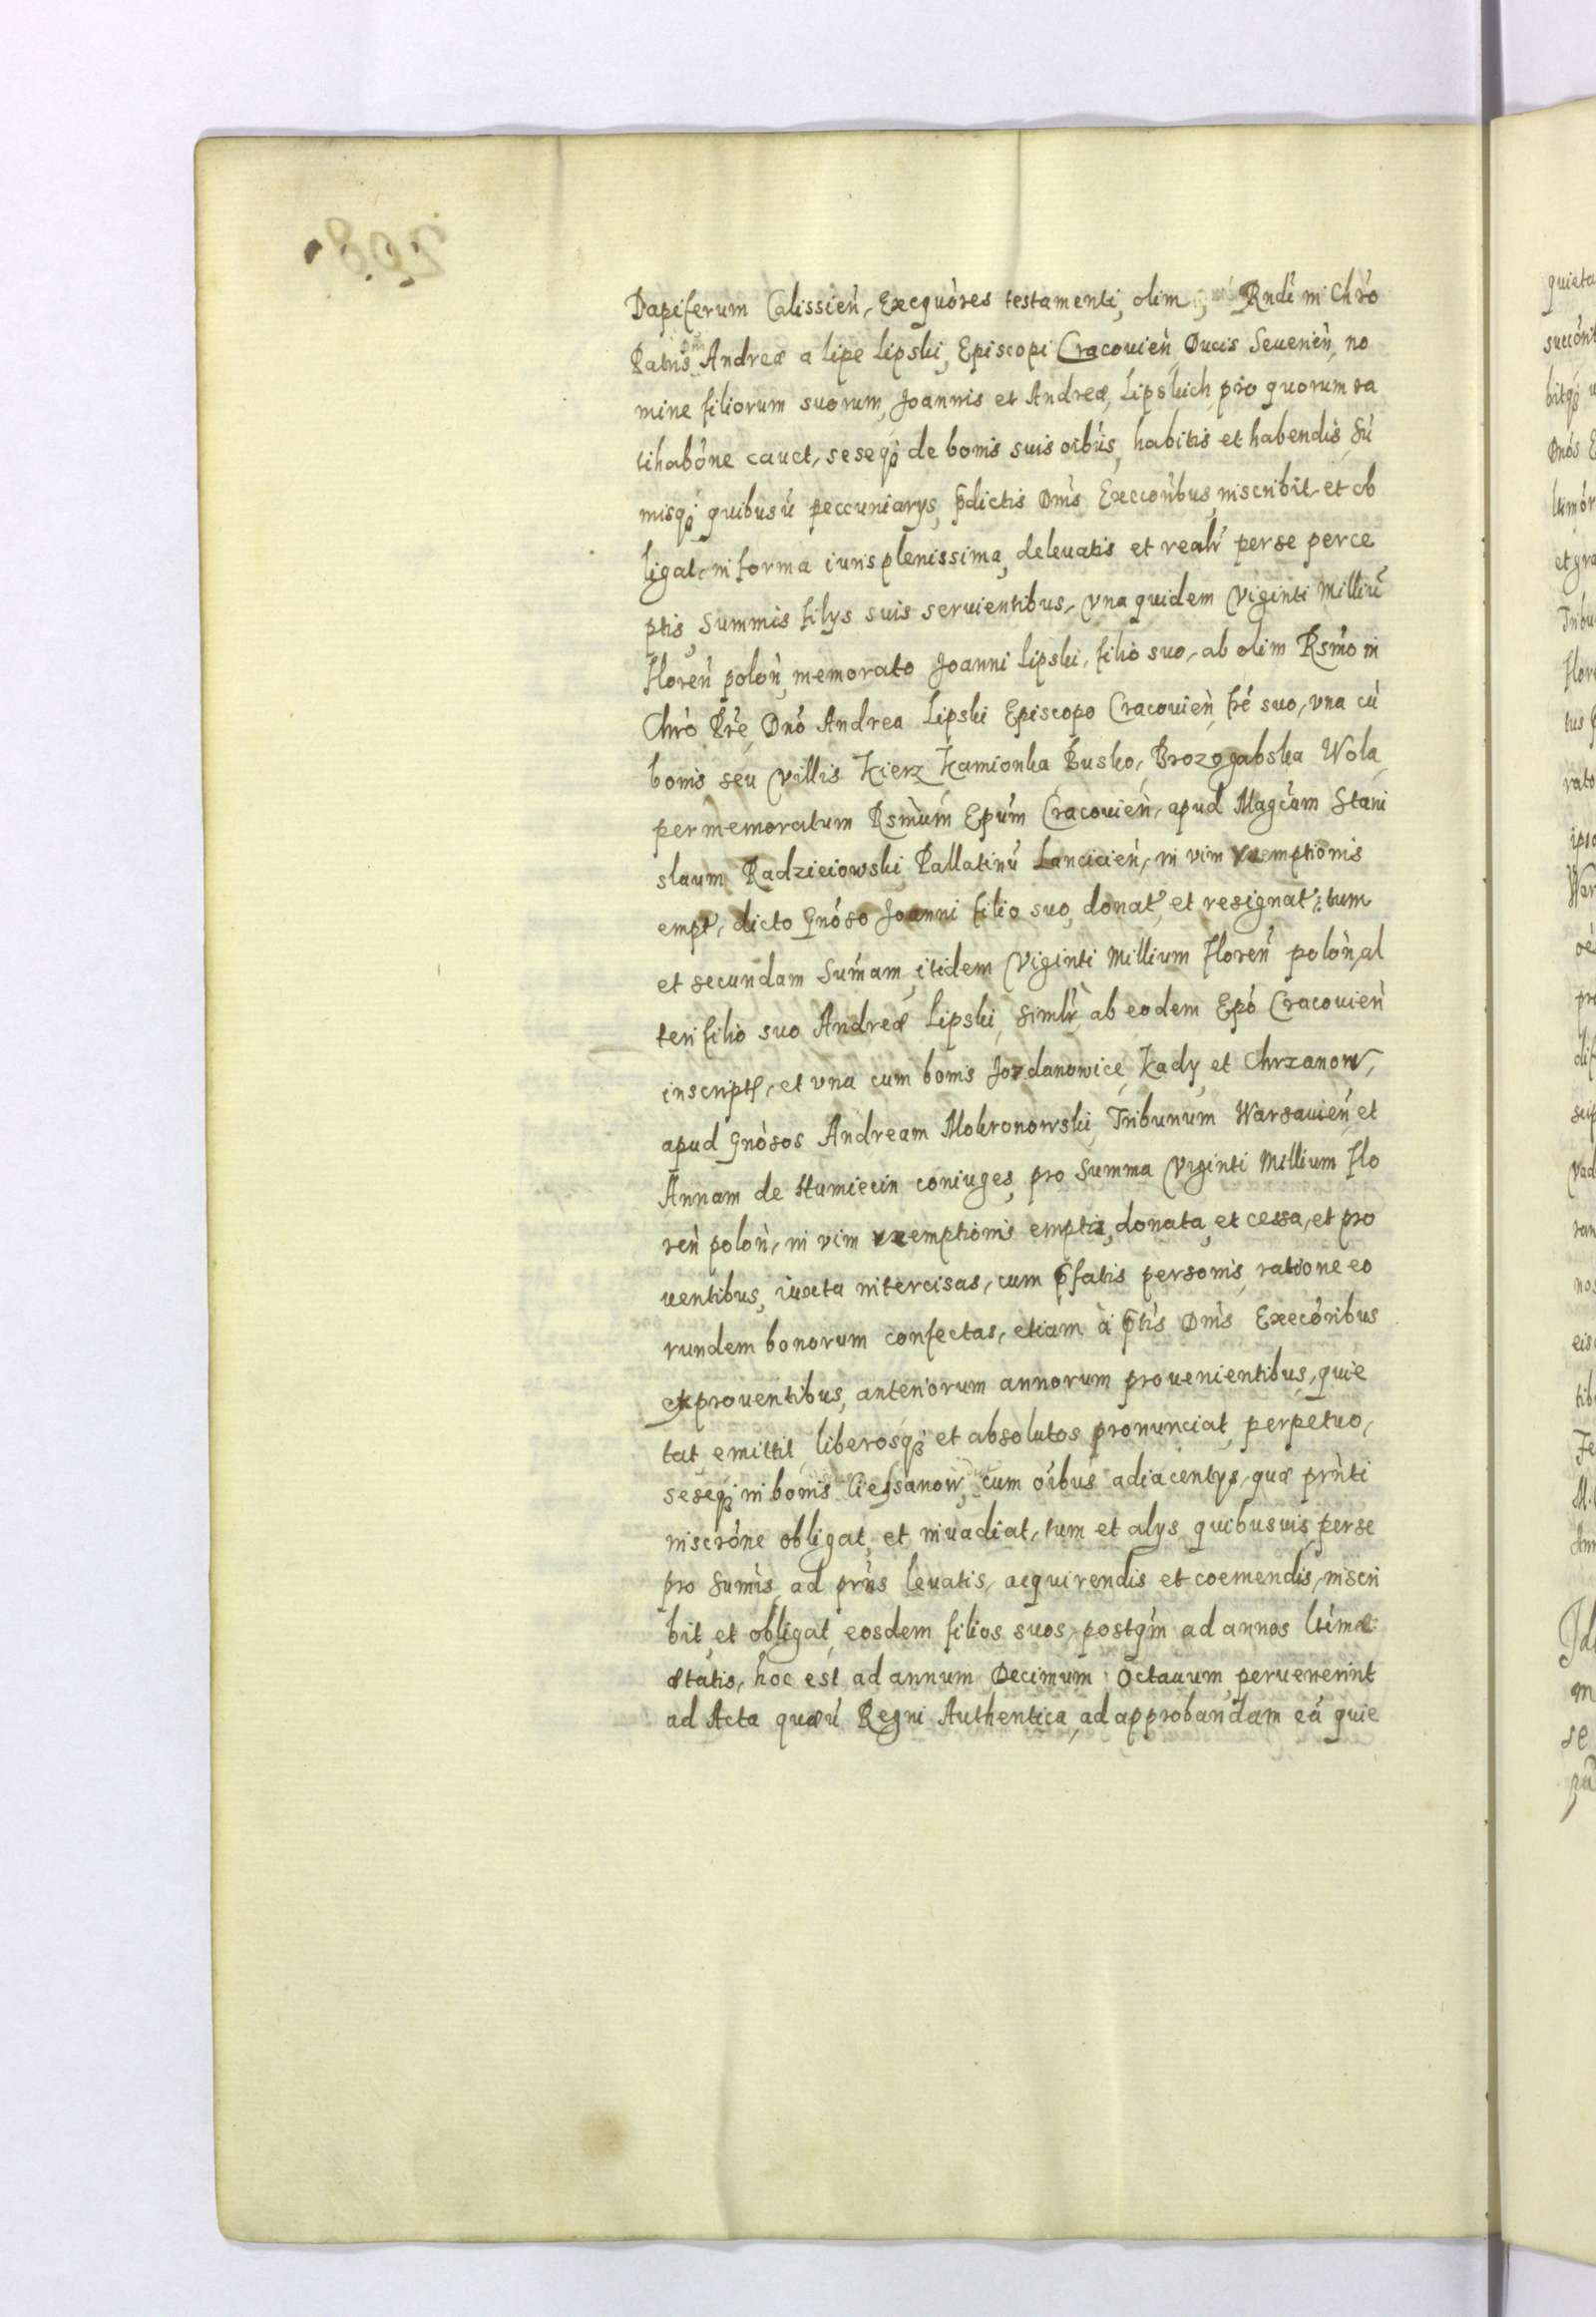 Dapiferum Calissień, Exequóres testamenti, olim Rndi in Chró
Patris Dni Andreæ a Lipe Lipski, Episcopi Cracouień Ducis Seuerień, no
mine filiorum suorum, Joannis et Andreæ, Lipskich, pro quorum ra
tihabóne cauet, seseq3 de bonis suis oibús, habitis et habendis, sú
misq3 quibusú peccuniarys, pdictis Dnis Execoribus, inscribit et ob
ligat, in forma iuris plenissima, deleuatis et realr perse perce
ptis, summis filys suis seruientibus, vna quidem Viginti Milliú
floreń poloń, memorato Joanni Lipski, filio suo, ab olim Rsmo in
Chró Pre, Dnó Andrea Lipski Episcopo Cracouień, fré suo, vna cú
bonis seu villis Kierz Kamionka Busko, Brozogabska Wola,
per memoratum Rsmum Epum Cracouień, apud Magcum Stani
slaum Radzieiowski, Pallatinú Lancicień, in vim reemptionis
empt, dicto Gnóso Joanni filio suo, donat, et resignat: tum
et secundam Sumam, itidem Viginti Millium floreń poloń, al
teri filio suo Andreæ Lipski, simlr ab eodem Epó Cracouień
inscript, et vna cum bonis Jordanowice, Kady, et Chrzanow,
apud Gnósos Andream Mokronowski, Tribunum Warsauień, et
Annam de Humiecin coniuges, pro Summa Viginti Millium flo
reń poloń, in vim reemptionis emptis, donata, et cessa, et pro
uentibus, iuxta intercisas, cum pfatis personis, ratione eo
rundem bonorum confectas, etiam à ptis Dnis Execóribus
ex prouentibus, anteriorum annorum prouenientibus, quie
tat, emittit, liberosq3 et absolutos pronunciat, perpetuo,
seseq3 in bonis Ciessanow, cum oibus adiacentys, quæ prnti
inscróne obligat, et inuadiat, tum et alys quibusuis perse
pro sumis, ad prns leuatis, acquirendis et coemendis, inscri
bit, et obligat, eosdem filios suos, postqm ad annos ltimæ
ætatis, hoc est ad annum Decimum Octauum peruenerint
ad Acta quæú Regni Authentica, ad approbandam eá quie